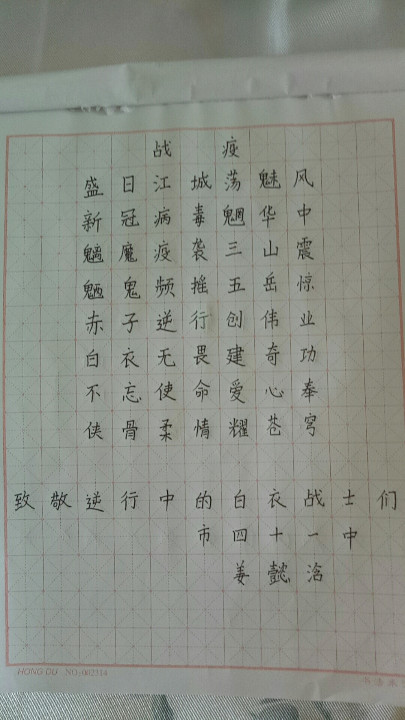 战疫
盛日江城荡魅风
新冠病毒魍华中
魑魔疫袭三山震
魉鬼频摧五岳惊
赤子逆行创伟业
白衣无畏建奇功
不忘使命爱心奉
侠骨柔情耀苍穹
致敬逆行中的白衣战士们
市四十一中
姜懿浛
HONG DU NO:002314